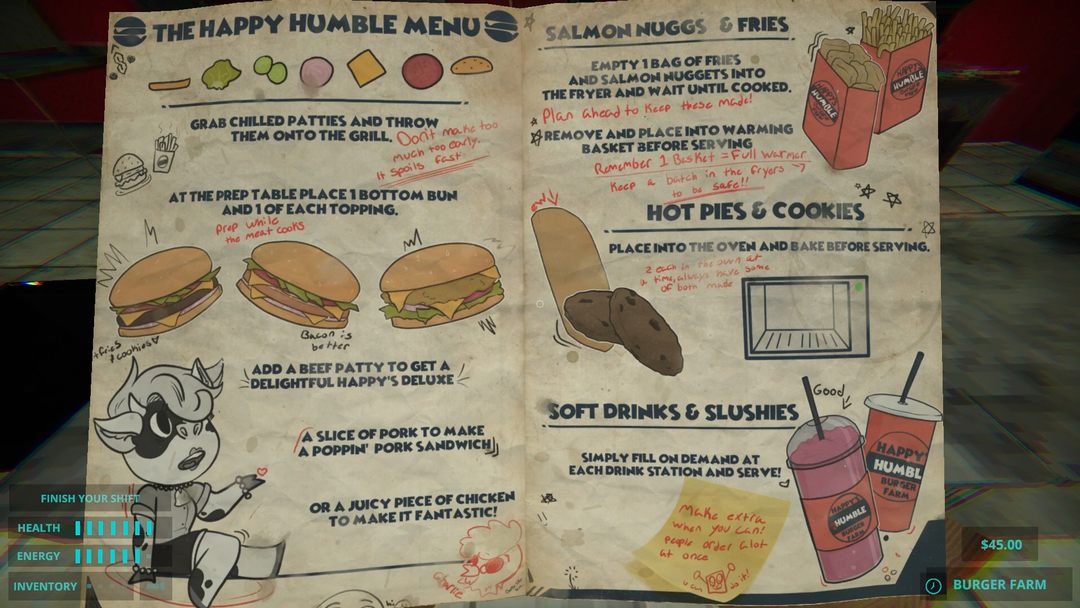 THE HAPPY HUMBLE MENU
GRAB CHILLED PATTIES AND THROW
THEM ONTO THE GRILL.
Don't make too
much too early.
It spoils fast
AT THE PREP TABLE PLACE 1 BOTTOM BUN
AND 1 OF EACH TOPPING.
Prep while
the meat cooks
+fries
+cookies
Bacon is
better
ADD A BEEF PATTY TO GET A
DELIGHTFUL HAPPY'S DELUXE
A SLICE OF PORK TO MAKE
A POPPIN' PORK SANDWICH
OR A JUICY PIECE OF CHICKEN
TO MAKE IT FANTASTIC!
Charlie
hi
SALMON NUGGS & FRIES
EMPTY 1 BAG OF FRIES
AND SALMON NUGGETS INTO
THE FRYER AND WAIT UNTIL COOKED.
Plan ahead to keep these made!
REMOVE AND PLACE INTO WARMING
BASKET BEFORE SERVING
Remember 1 Basket = Full Warmer
Keep a batch in the fryers
to be safe!!
HAPPY
HUMBLE
HAPPY
HUMBLE
HOT PIES & COOKIES
ew
PLACE INTO THE OVEN AND BAKE BEFORE SERVING.
2 each in the oven at
a time, always have some
of both made
SOFT DRINKS & SLUSHIES
Good
SIMPLY FILL ON DEMAND AT
EACH DRINK STATION AND SERVE!
Make extra
when you can!
People order alot
at once
u can do it!
HAPPY'S
HUMBLE
BURGER
FARM
HAPPY
HUMBL
BURGER
FARM
FINISH YOUR SHIFT
HEALTH
ENERGY
INVENTORY
$45.00
BURGER FARM